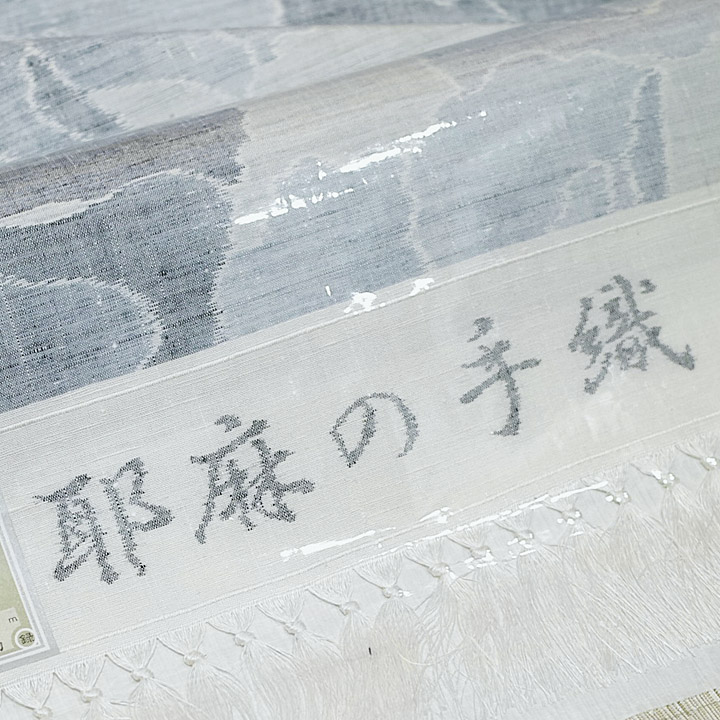 耶麻の手織